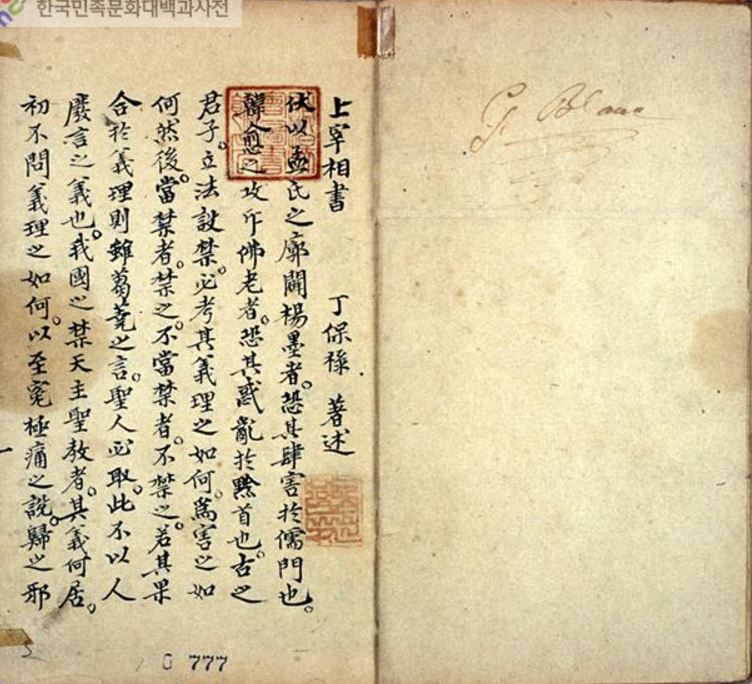 한국민족문화대백과사전
G. Blanc
上宰相書 丁保祿 著述
伏以孟氏之廓闢楊墨者。恐其肆害於儒門也。
韓愈之攻斥佛老者。恐其惑亂於黔首也。古之
君子。立法設禁。必考其義理之如何。爲害之如
何然後。當禁者。禁之。不當禁者。不禁之。若其果
合於義理則雖蒭蕘之言。聖人必取。此不以人
廢言之義也。我國之禁天主聖教者。其義何居。
初不問義理之如何。以至寃極痛之說。歸之邪
777